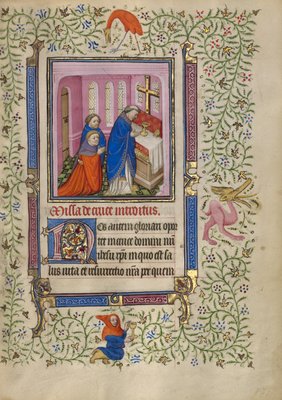 Missa de cruce introitus.
Nos autem gloriari opor
tet in cruce domini nri
ihesu xpi in quo est sa
lus vita et resurrectio nra per quem